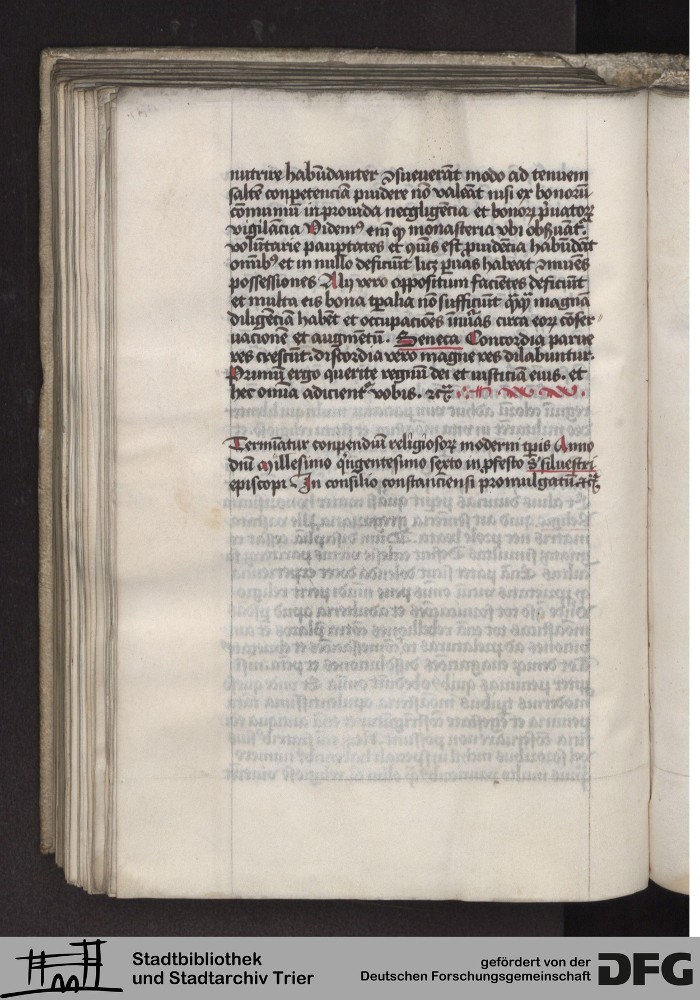 nutrire habūdanter ɔsueuerāt modo ad tenuem
saltē conpetenciā ꝓuidere nō valeāt nisi ex bonorū
cōmuniū inprouida necgligēcia et bonoꝝ pͥuatoꝝ
vigilācia Videmꝰ em̄ ꝙ monasteria vbi obẜuāt᷑
volūtarie paup̱tates et qͣuis est ꝓuidēcia habūdāt
omībꝰ et in nullo deficiūt licꝫ ꝑuas habeāt ɔmunes
possessiones Alij vero oppositum faciētes deficiūt
et multa eis bona tp̄alia nō sufficiūt qͣꝫ magna
diligēciā habēt et occupaciōes circa eoꝝ cōser
uacionē et augmētū. Seneca Concordia parue
res crescūt. discordia vero magne res dilabuntur.
Primū ergo querite regnū dei et iusticiā eius. et
hec omīa adicient᷑ vobis. ⁊cꝫ
Termīatur conpendiū religiosoꝝ moderni tp̄is Anno
dn̄i Millesimo qͥngentesimo sexto in ꝓfesto sͥ siluestri
episcopi. In consilio constanciensi promulgatū ⁊cꝫ
Stadtbibliothek
und Stadtarchiv Trier
gefördert von der
Deutschen Forschungsgemeinschaft
DFG